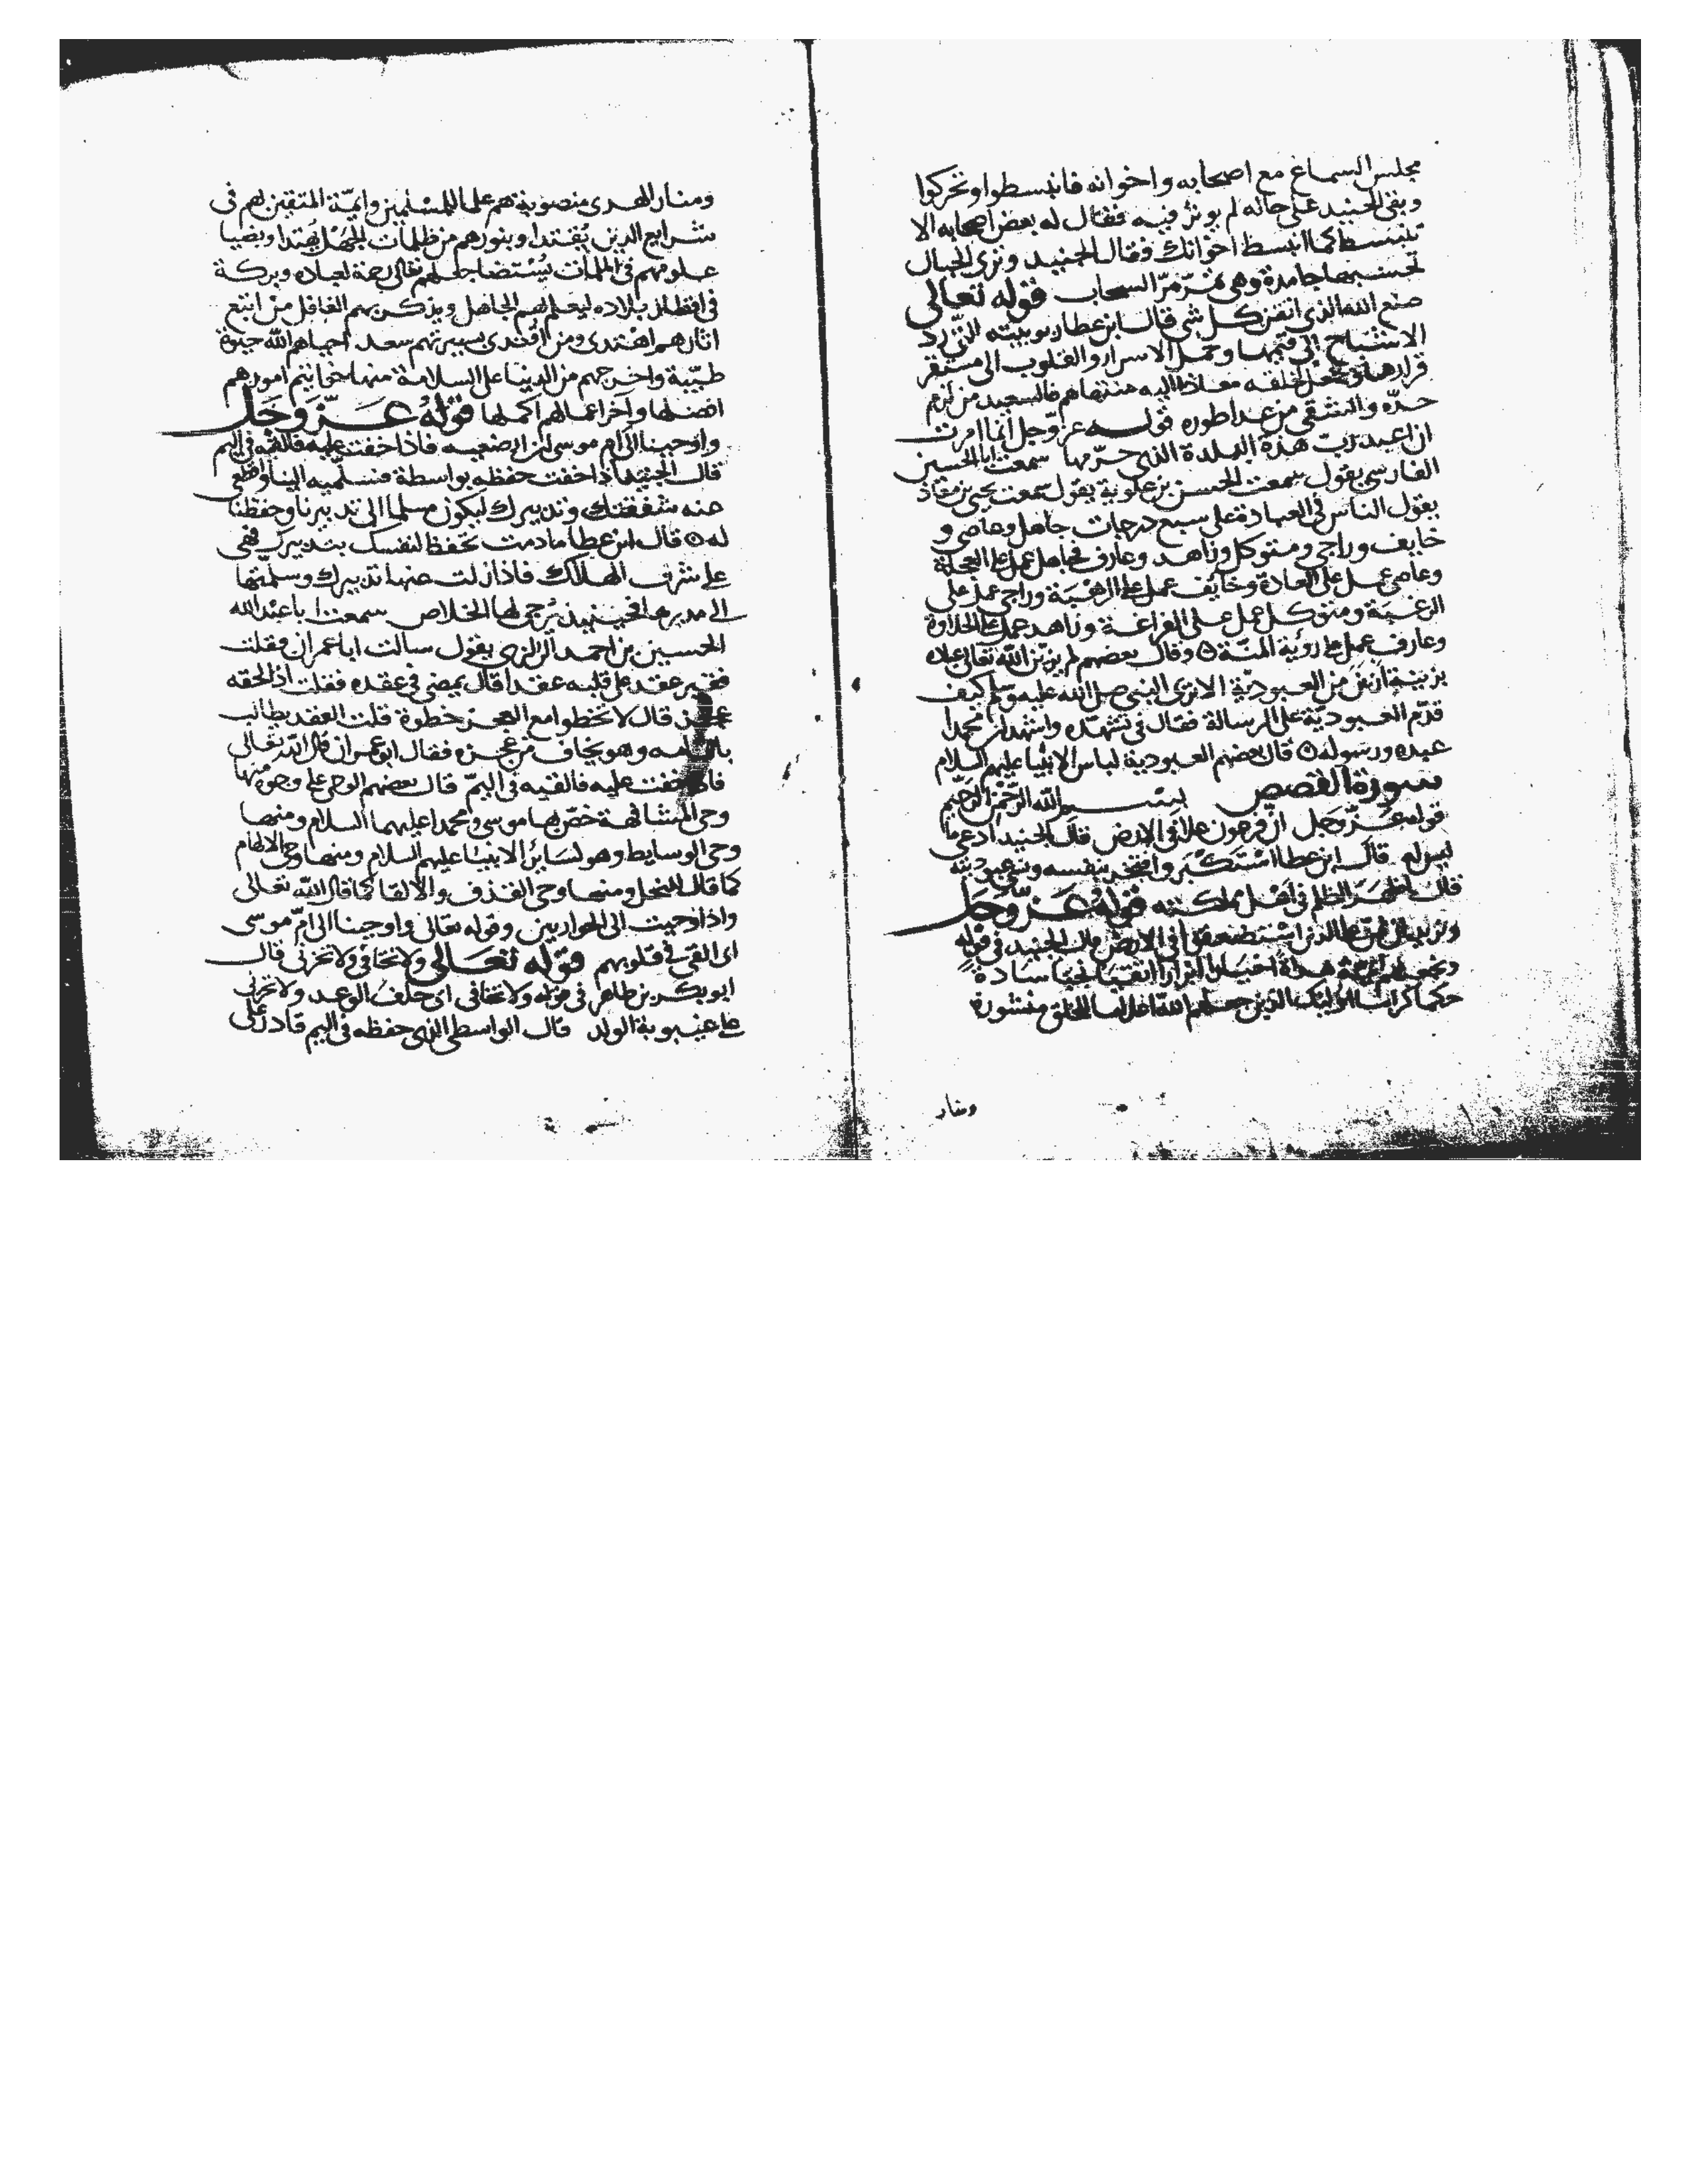 مجلس السماع مع اصحابه واخوانه فانبسطوا وتحركوا
وبقى الجنيد على حاله لم يوثر فيه فقال له بعض اصحابه الا
تنبسط كما انبسط اخوانك فقال الجنيد وترى الجبال
تحسبها جامدة وهى تمر مرّ السحاب قوله تعالى
صنع الله الذى اتقن كل شى قال ابن عطا ربوبيته التى رد
الاشباح الى قيمها وحمل الاسرار والقلوب الى مستقر
قرارها وجعل لخلقه معادا اليه منتهاهم فالسعيد من لزم
حدّه والشقى من عدا طوره قوله عزّ وجل انما امرت
ان اعبد رب هذه البلدة الذى حرّمها سمعت ابا الحسين
الفارسى يقول سمعت الحسن بن علوية يقول سمعت يحيى بن معاذ
يقول الناس فى العبادة على سبع درجات جاهل وعاصى و
خايف وراجى ومتوكل وزاهد وعارف فجاهل عمل على العجلة
وعاصى عمل على العادة وخايف عمل على الرهبة وراجى عمل على
الرغبة ومتوكل عمل على الفراغة وزاهد عمل على الحلاوة
وعارف عمل على رؤية المنّة ه وقال بعضهم لم يزيّن الله تعالى عباده
بزينة ازين من العبوديّة الا ترى النبى صلى الله عليه وسلم كيف
قدّم العبوديّة على الرسالة فقال فى تشهّده واشهد ان محمدا
عبده ورسوله ه قال بعضهم العبودية لباس الانبيا عليهم السلام
سورة القصص بسم الله الرّحمن الرّحيم
قوله عزّ وجل ان فرعون علا فى الارض قال الجنيد ادعى ما
ليس له قال ابن عطا استكبر وافتخر بنفسه ونسى عبوديته
قال اظهر الظلم فى اهل مملكته قوله عزّ وجل
ونريد ان نمن على الذين استضعفوا فى الارض قال الجنيد فى قوله
ونجعلهم ائمة هداة اخيارا ابرارا اتقيا نجبا سادة
حكما كراما اوليك الذين جعلهم الله اعلاما للخلق منشورة
ومنار
ومنار الهدى منصوبة هم علما المسلمين وايمّة المتقين بهم فى
شرايع الدين يُقتدا وبنورهم من ظلمات الجهل يُهتدا وبضيا
علومهم فى الملمات يُستضا جعلهم تعالى رحمة لعباده وبركة
فى اقطار بلاده ليعلم بهم الجاهل ويذكر بهم الغافل من اتبع
اثارهم اهتدى ومن اقتدى بسيرتهم سعد احياهم الله حيوة
طيّبة واخرجهم من الدنيا على السلامة منها خواتيم امورهم
افضلها وآخر اعمالهم اكملها قوله عزّ وجل
واوحينا الى ام موسى ان ارضعيه فاذا خفت عليه فالقيه فى اليم
قال الجنيد اذا خفت حفظه بواسطة فسلّميه الينا واقطعى
عنه شفقتك وتدبيرك ليكون مسلما الى تدبيرنا وحفظنا
له ه قال ابن عطا ما دمت تحفظ لنفسك بتدبيرك فهى
على شرف الهلاك فاذا زلت عنها تدبيرك وسلّمتها
الى مدبرها فحينيذ يُرجى لها الخلاص سمعت ابا عبد الله
الحسين بن احمد الرازى يقول سالت ابا عمران وقلت
فقير عقد على قلبه عقدا قال يمضى فى عقده فقلت اذا لحقه
عجز قال لا تخطوا مع العجز خطوة قلت العقد يطالب
وهو يخاف من عجزه فقال ابو عمران قال الله تعالى
فاذا خفت عليه فالقيه فى اليمّ قال بعضهم الوحى على وجوه منها
وحى المشافهة خصّ بها موسى ومحمدا عليهما السلام ومنها
وحى الوسايط وهو لسائر الانبيا عليهم السلام ومنها وحى الالهام
كما قال للنحل ومنها وحى القذف والالقا كما قال الله تعالى
واذ اوحيت الى الحواريين وقوله تعالى واوحينا الى امّ موسى
اى القى فى قلوبهم قوله تعالى ولا تخافى ولا تحزنى قال
ابو بكر بن طاهر فى قوله ولا تخافى اى خلف الوعد ولا تحزنى
على غيبوبة الولد قال الواسطى الذى حفظه فى اليم قادر على